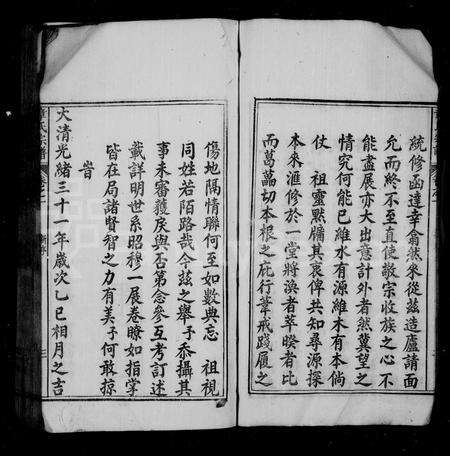 統修函達幸翕然來從茲造廬請面
允而終不至直使敬宗收族之心不
能盡展亦大出意計外者然冀望之
情究何能已維水有源維木有本倘
仗　祖靈黙牖其衷俾共知尋源探
本來滙修於一堂將渙者萃睽者比
而葛藟切本根之庇行葦戒踐履之
傷地隔情聯何至如數典忘　祖視
同姓若陌路哉今茲之舉予忝攝其
事未審獲戾與否第念參互考訂述
載詳明世系昭穆一展卷瞭如指掌
皆在局諸賢智之力有美予何敢掠
旹
大清光緒三十一年歲次乙巳相月之吉
氏宗譜
三